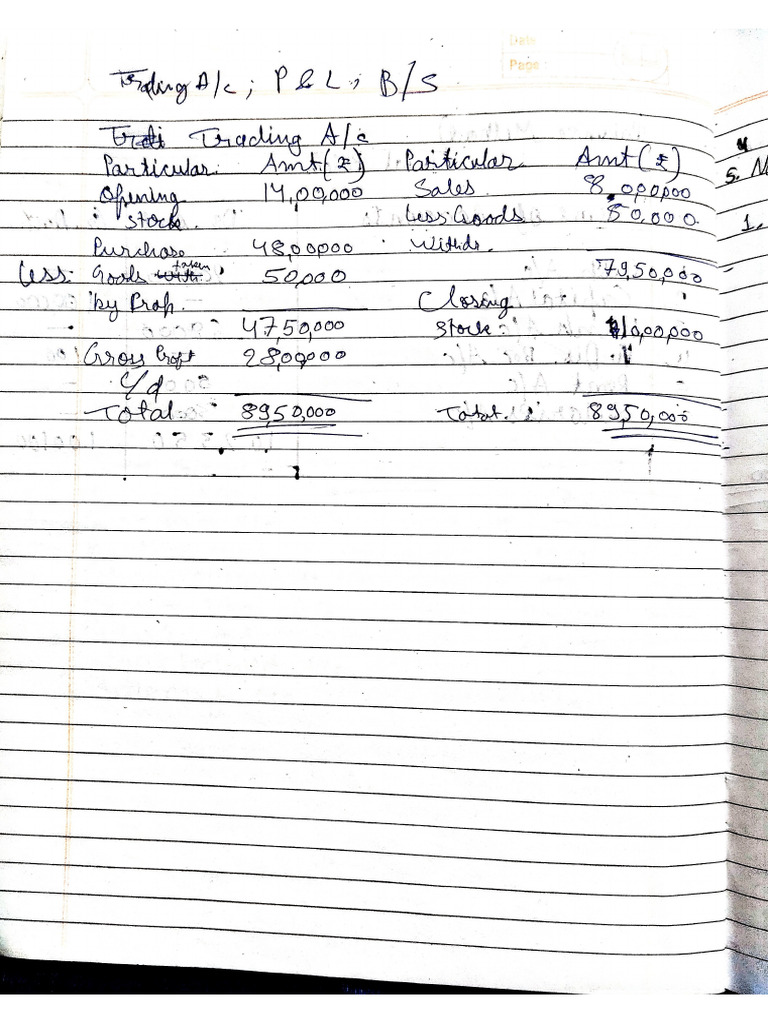 Date
Page
Trading A/c ; P & L ; B/S
Trading A/c
Particular Amt.(₹) Particular Amt(₹)
Opening 14,00,000 Sales 8,000,000
stock Less: Goods 50,000
Purchase 48,00,000 Withdr.
Less: Goods taken 50,000 79,50,000
by Prop. Closing
47,50,000 stock 10,00,000
Gross Profit 28,00,000
c/d
Total 8950,000 Total. 8950,000
5. N
1.